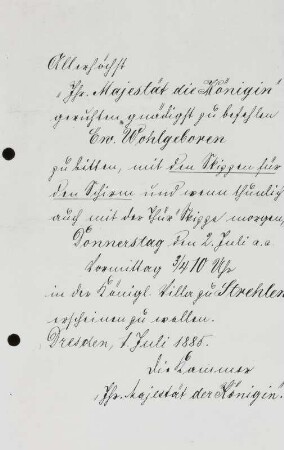 Allerhöchst
„Ihr. Majestät die Königin“
geruhten gnädigst zu befehlen
Ew. Wohlgeboren
zu bitten, mit den Skizzen für
den Schirm und wenn thunlich
auch mit der Thür Skizze morgen,
Donnerstag den 2. Juli a.c.
Vormittag 3/4 10 Uhr
in der Königl. Villa zu Strehlen
erscheinen zu wollen.
Dresden, 1. Juli 1885.
Die Kammer
„Ihr. Majestät der Königin“.